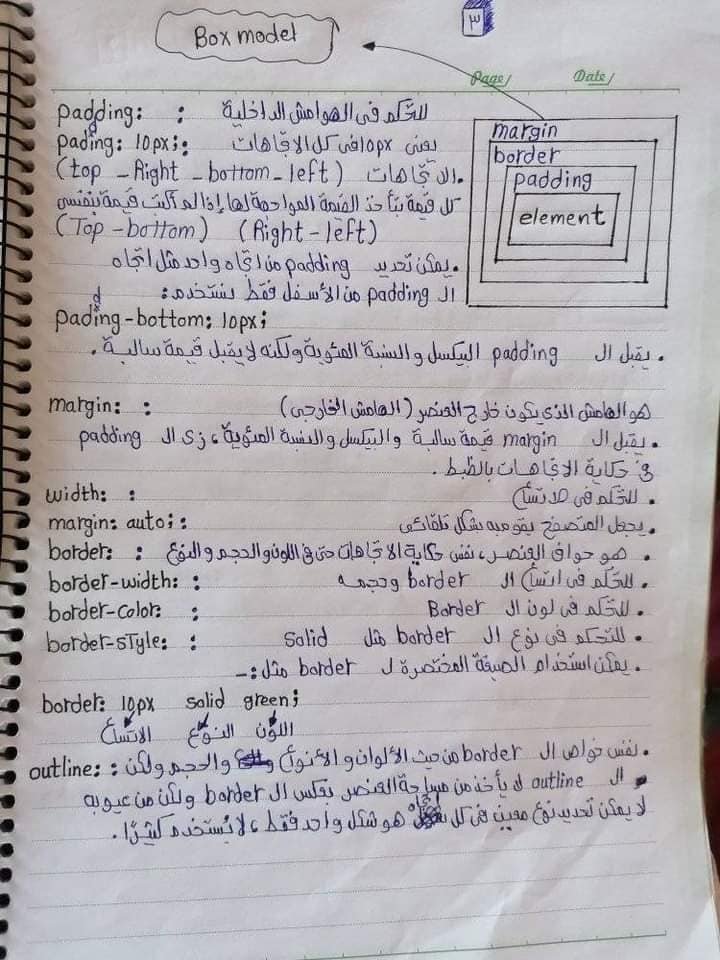 ٣
Box model
Page/ Date/
padding: : للتحكم فى الهوامش الداخلية
pading: 10px;: يعنى 10px فى كل الاتجاهات
d
.الاتجاهات (top - Right - bottom - left)
كل قيمة بتأخذ القيمة المواجهة لها إذا لم أكتب قيمة بنفسى
(Top - bottom) (Right - left)
.يمكن تحديد padding من اتجاه واحد مثل اتجاه
ال padding من الأسفل فقط نستخدم:
d
pading-bottom: 10px;
.يقبل ال padding البيكسل والنسبة المئوية ولكنه لا يقبل قيمة سالبة.
margin
border
padding
element
margin: : هو الهامش الذى يكون خارج العنصر (الهامش الخارجى)
.يقبل ال margin قيمة سالبة والبيكسل والنسبة المئوية، زى ال padding
فى حكاية الاتجاهات بالظبط.
width: : .للتحكم فى الاتساع
margin: auto;: .يجعل المتصفح يقوم به بشكل تلقائى
border: : .هو حواف العنصر، نفس حكاية الاتجاهات حتى فى اللون والحجم والنوع
border-width: : .للتحكم فى اتساع ال border وحجمه
border-color: : .للتحكم فى لون ال Border
border-sTyle: : .للتحكم فى نوع ال border مثل Solid
.يمكن استخدام الصيغة المختصرة ل border مثل:-
border: 10px solid green;
الاتساع النوع اللون
outline: : .نفس خواص ال border من حيث الألوان والأنواع والحجم ولكن
ال outline لا يأخذ من مساحة العنصر بعكس ال border ولكن من عيوبه
لا يمكن تحديد نوع معين فى كل اتجاه هو شكل واحد فقط، لا يُستخدم كثيرًا.